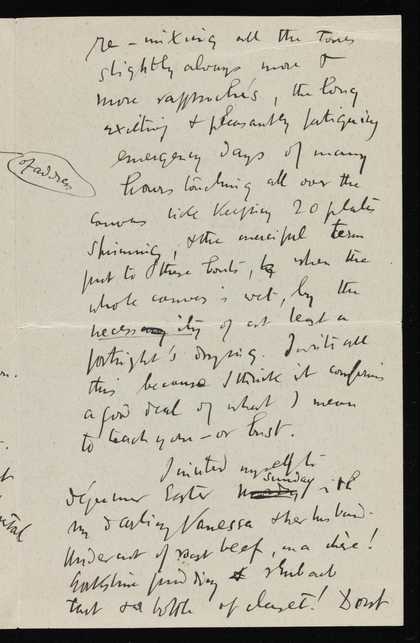 re-mixing all the tones
slightly always more &
more rapprochés, the long
exciting & pleasantly fatiguing
emergency days of many
hours touching all over the
canvas like keeping 20 plates
spinning, & the merciful term
put to these bouts, by when the
whole canvas is wet, by the
necessity of at least a
fortnight's drying. I write all
this because I think it confirms
a good deal of what I mean
to teach you – or bust.
I invited myself to
déjeuner Easter Sunday with
my darling Vanessa & her husband.
Undercut of roast beef, ma chère!
Yorkshire pudding & rhubarb
tart & a bottle of claret! Don't
of address